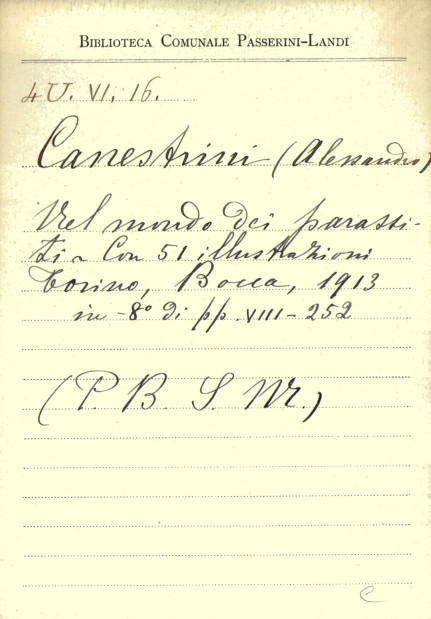 BIBLIOTECA COMUNALE PASSERINI-LANDI
4U. VI. 16.
Canestrini (Alessandro)
Nel mondo dei parassi-
ti - Con 51 illustrazioni
Torino, Bocca, 1913
in-8º di pp. VIII-252
(P. B. S. M.)
C